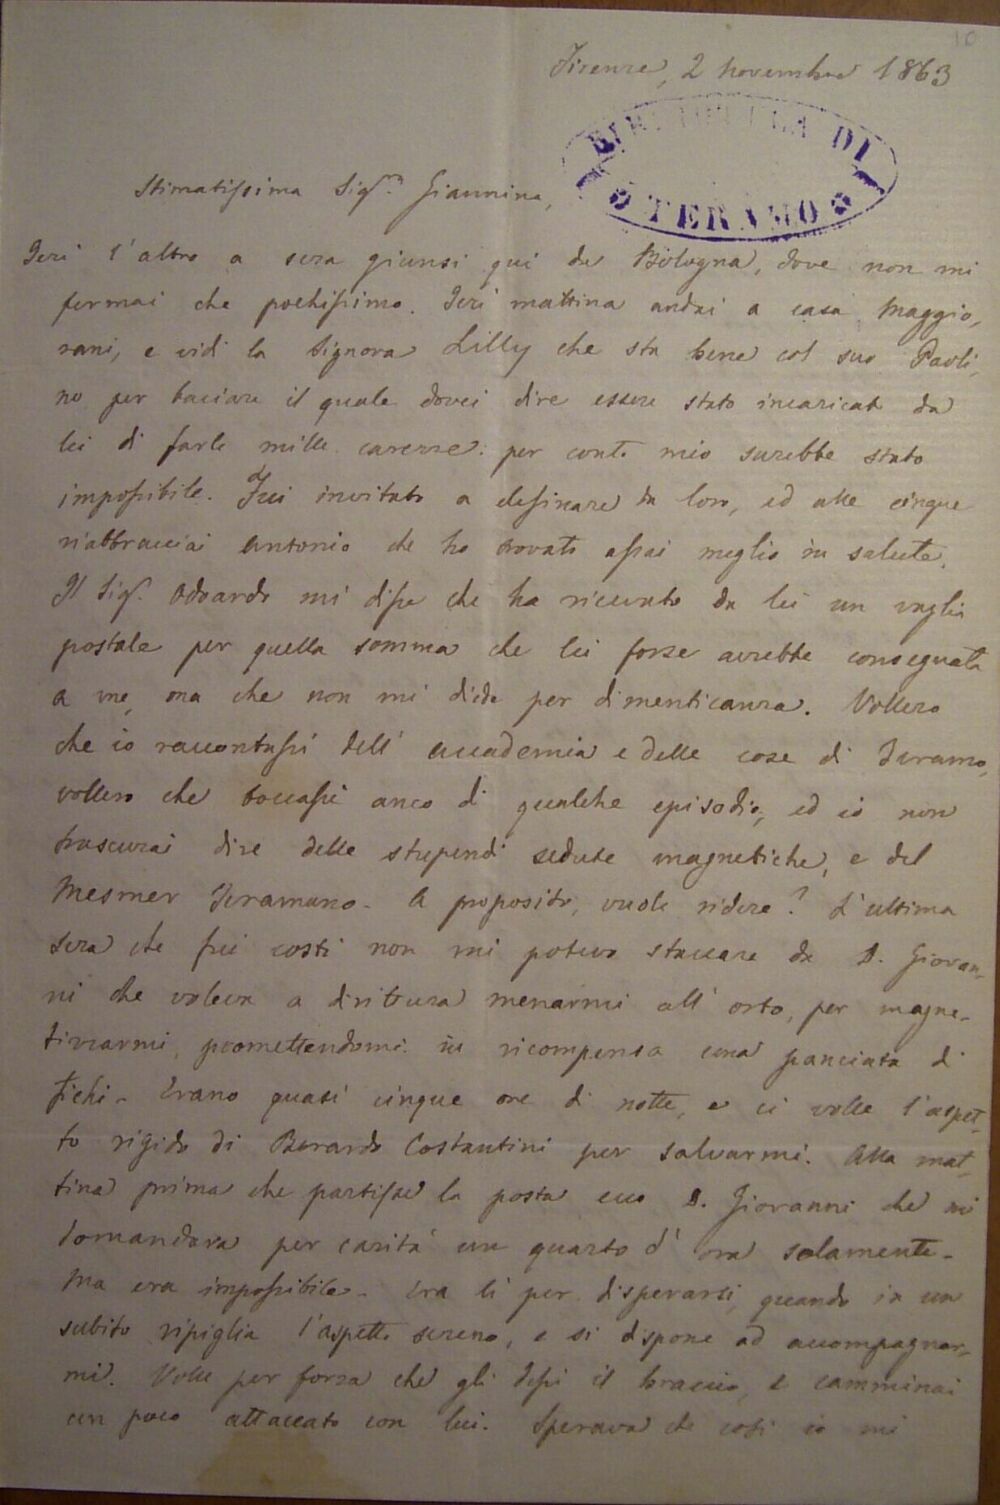 10
Firenze, 2 novembre 1863
BIBLIOTECA DI
TERAMO
Stimatissima Sigra. Giannina,
Ieri l'altro a sera giunsi qui da Bologna, dove non mi
fermai che pochissimo. Ieri mattina andai a casa Maggio,
rani, e vidi la Signora Lilly che sta bene col suo Paoli,
no per baciare il quale dovei dire essere stato incaricato da
lei di farle mille carezze: per conto mio sarebbe stato
impossibile. Fui invitato a desinare da loro, ed alle cinque
riabbracciai Antonio che ho trovato assai meglio in salute.
Il Sigr. Odoardo mi disse che ha ricevuto da lei un vaglia
postale per quella somma che lei forse avrebbe consegnata
a me, ma che non mi diede per dimenticanza. Vollero
che io raccontassi dell'accademia e delle cose di Teramo,
vollero che toccassi anco di qualche episodio, ed io non
trascurai dire delle stupendi sedute magnetiche, e del
Mesmer Teramano - A proposito, vuole ridere? L'ultima
sera che fui costì non mi poteva staccare da D. Giovan-
ni che voleva a dirittura menarmi all'orto, per magne-
tizzarmi, promettendomi in ricompensa una panciata di
fichi - Erano quasi cinque ore di notte, e ci volle l'aspet-
to rigido di Berardo Costantini per salvarmi. Alla mat-
tina prima che partisse la posta ecco D. Giovanni che mi
domandava per carità un quarto d'ora solamente -
Ma era impossibile - Era lì per disperarsi, quando in un
subito ripiglia l'aspetto sereno, e si dispone ad accompagnar-
mi. Volle per forza che gli dessi il braccio, e camminai
un poco attaccato con lui. Sperava che così io mi